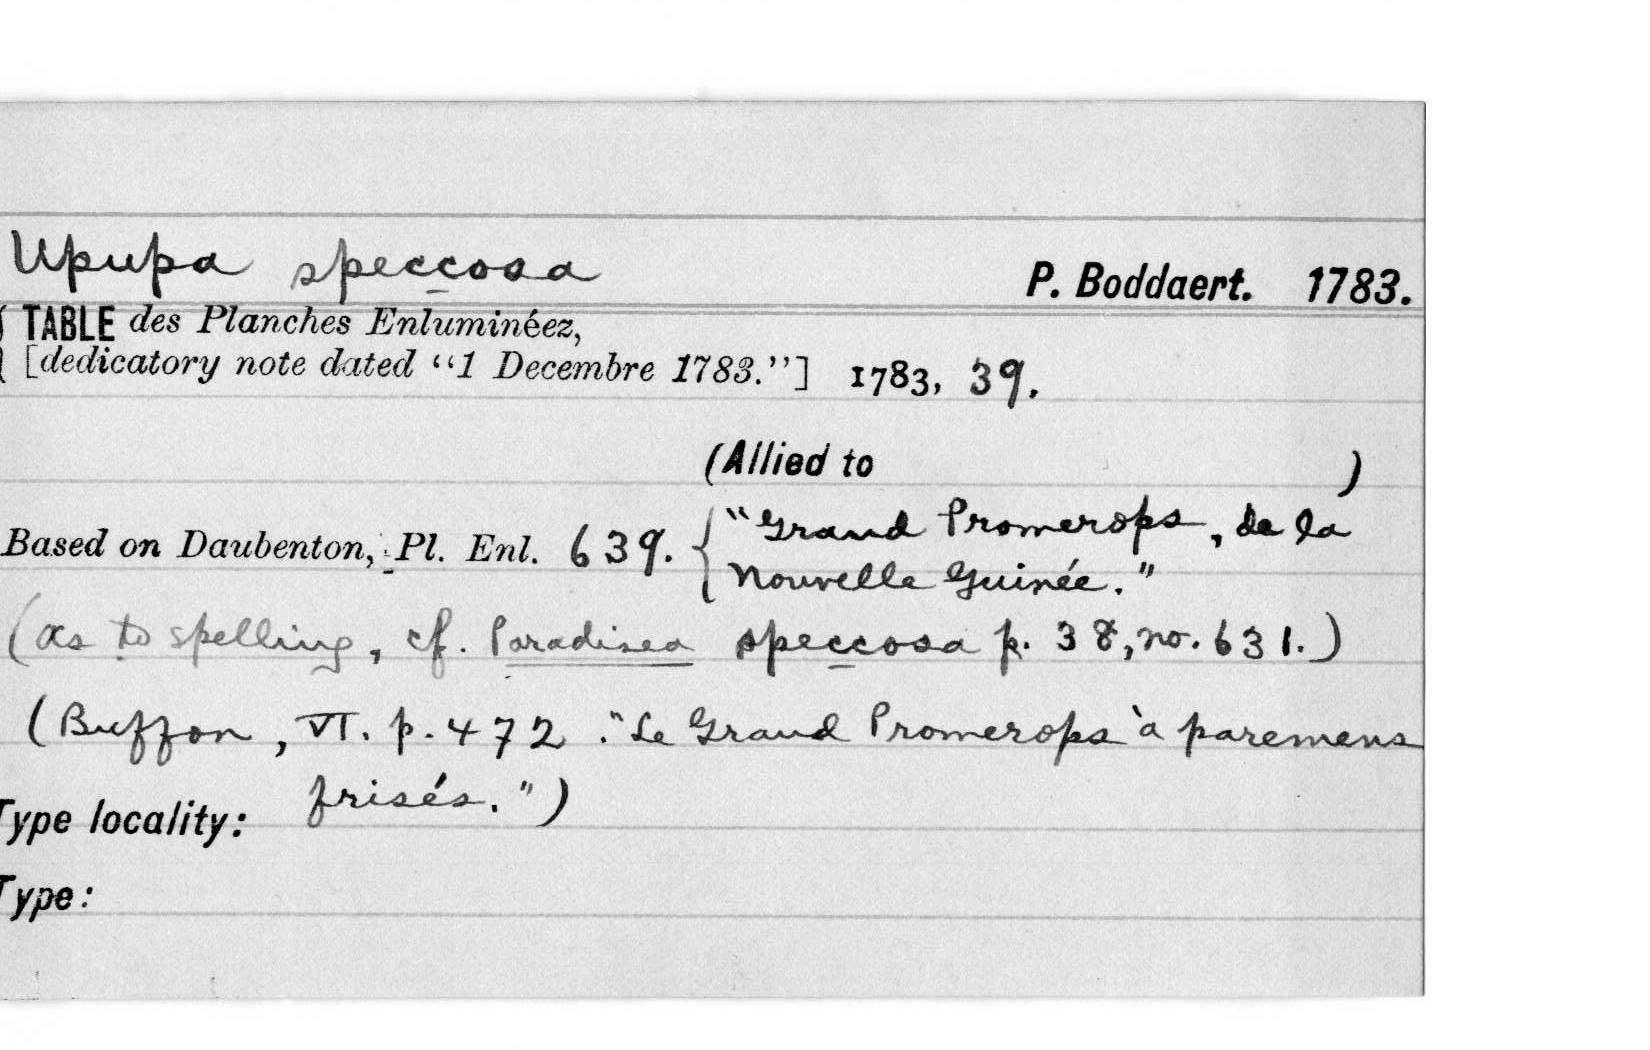 Upupa speccosa
P. Boddaert. 1783.
TABLE des Planches Enluminéez,
[dedicatory note dated “1 Decembre 1783.”] 1783, 39.
(Allied to )
Based on Daubenton, Pl. Enl. 639. { "Grand Promerops, de la
Nouvelle Guinée."
(as to spelling, cf. Paradisea speccosa p. 38, no. 631.)
(Buffon, VI. p. 472. "Le Grand Promerops à paremens
frisés.")
Type locality:
Type: